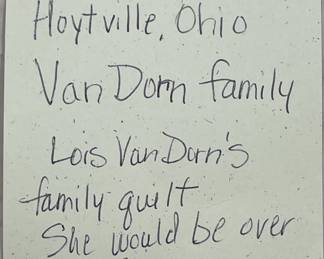 Hoytville, Ohio
Van Dorn family
Lois Van Dorn's
family quilt
She would be over